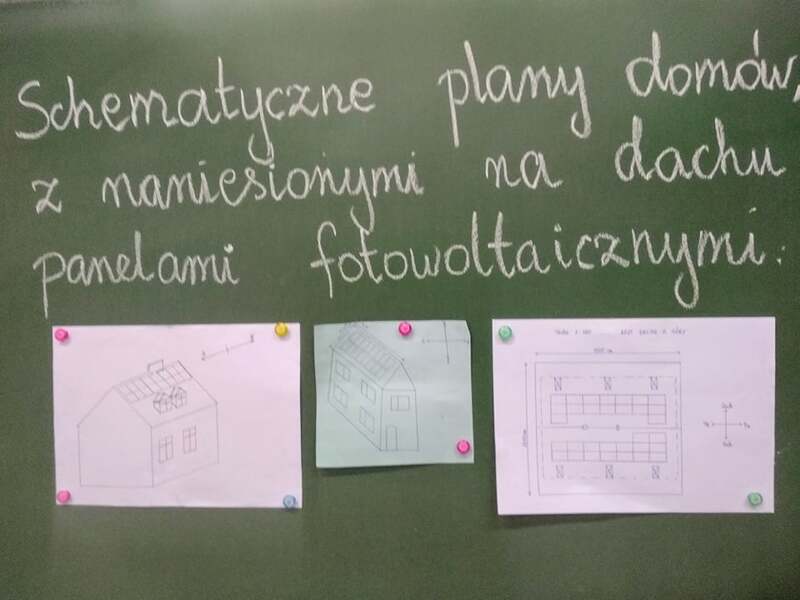 Schematyczne plany domów,
z naniesionymi na dachu
panelami fotowoltaicznymi: